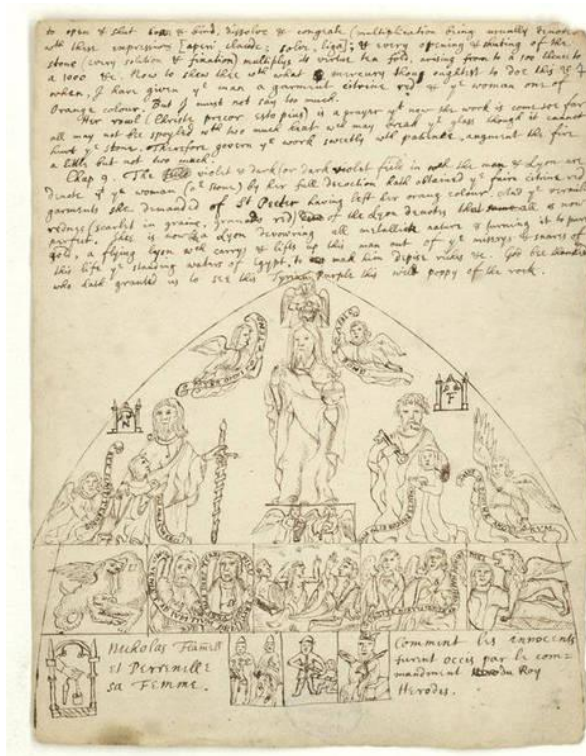 to open & shut loose & bind, dissolve & congeale (multiplication being usually denoted
wth these expressions [aperi, claude; solve, liga]; & every opening & shutting of the
stone (every solution & fixation) multiplys its virtue ten fold, arising from to a 100 thence to
a 1000 &c. Now to shew thee wth what mercury thou oughtest to doe this &
when, I have given ye man a garment citrine red & ye woman one of
Orange colour. But I must not say too much.
Her rowl (Christe precor esto pius) is a prayer yt now the work is come so far
all may not be spoyled wth two much heat wch may break ye glass though it cannot
hurt ye stone. Therefore govern ye work sweetly wth patience, augment the fire
a little but not two much.
Chap 9. The violet & dark (or dark violet field in wch the man & Lyon are
denote yt ye woman (ye stone) by her full decoction hath obtained ye faire citrine red
garments she demanded of St Peeter having left her orang colour. And ye
rednes (scarlet in graine, granade red) of the Lyon denotes that all is now
perfect. Shee is now a Lyon devowring all metallick nature & turning it to pure
gold, a flying lyon wch carrys & lifts up this man out of ye miserys & snares of
this life ye standing waters of Egypt, to mak him despise riches &c. God bee thanked
who hath granted us to see this Tyrian purple this wild poppy of the rock.
N
F
Nicholas Flamell
et Perrenelle
sa Femme.
Comment les innocents
furent occis par le com-
mandment du Roy
Herodes.